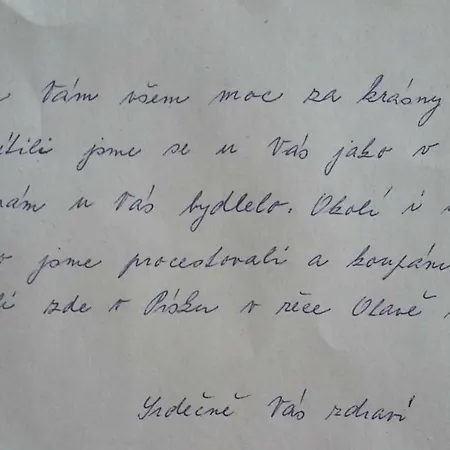 Vám všem moc za krásný
jsme se u Vás jako v
nám u Vás bydlelo. Okolí i
jsme procestovali a koupání
zde v Písku v řece Otavě
Srdečně Vás zdraví